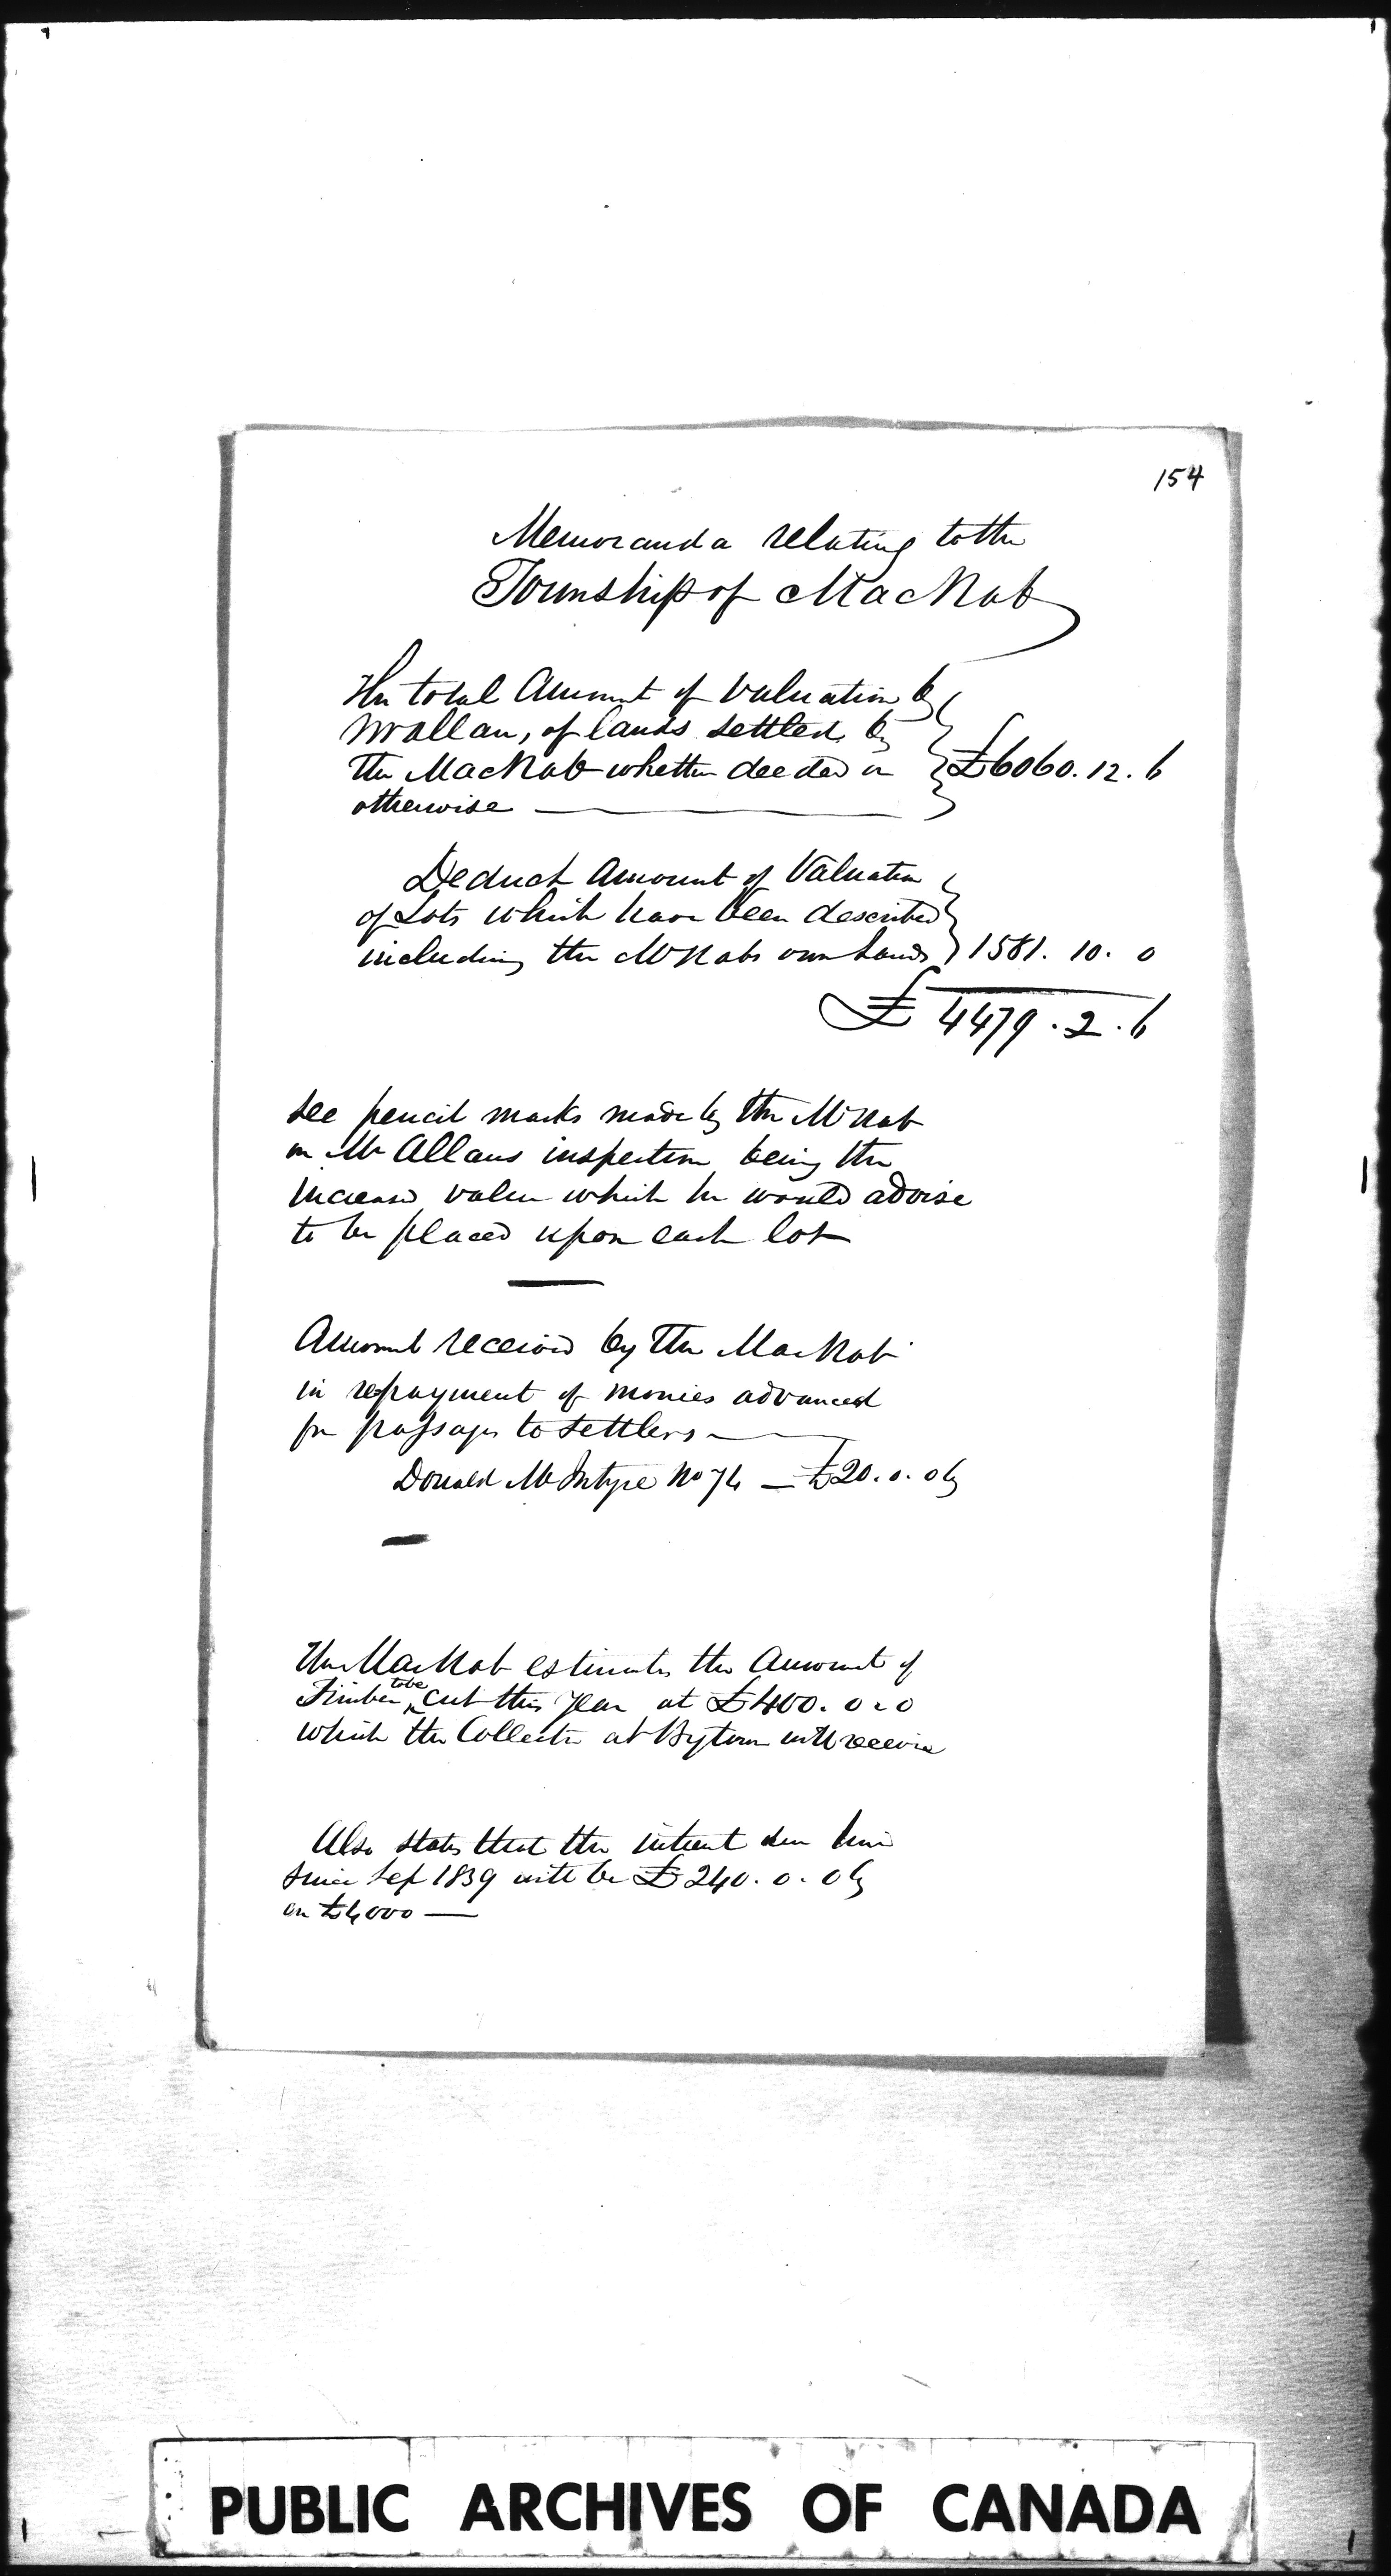 154
Memoranda relating to the
Township of MacNab
The total Amount of Valuation by
Mr Allan, of lands settled by
the MacNab whether deeded or
otherwise — £6060. 12. 6
Deduct Amount of Valuation
of Lots which have been described
including the McNabs own Lands 1581. 10. 0
£ 4479. 2. 6
See pencil marks made by the McNab
on Mr Allans inspection being the
increased value which he would advise
to be placed upon each lot
Amount received by The MacNab
in repayment of monies advanced
for passages to settlers —
Donald McIntyre No 74 — £20. 0. 0
The MacNab estimates the Amount of
Timber to be cut this year at £400. 0. 0
which the Collector at Bytown will receive
Also states that the interest due him
since Sep 1839 will be £240. 0. 0
on £4000 —
PUBLIC ARCHIVES OF CANADA